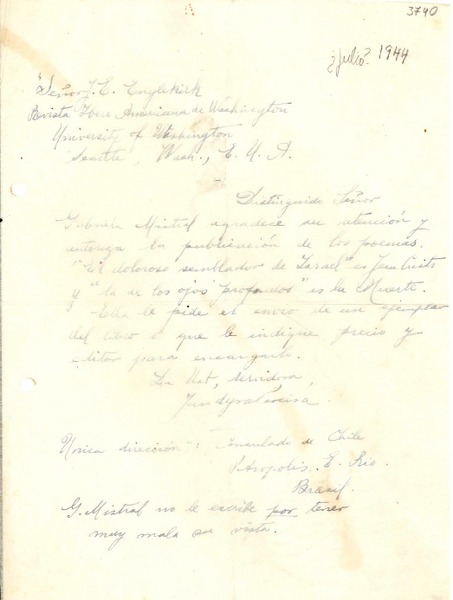 3740
¿julio? 1944
"Señor J. E. Englekirk
Revista Ibero Americana de Washington
University of Washington
Seattle, Wash., E. U. A.
Distinguido Señor
Gabriela Mistral agradece su atención y
autoriza la publicación de los poemas.
"El doloroso sembrador de Israel" es Jesu Cristo
y "la de los ojos profundos" es la Muerte.
Ella le pide el envío de un ejemplar
del libro o que le indique precio y
editor para encargarlo.
De Ud., servidora,
Única dirección: Consulado de Chile
Petropolis. E. Rio.
Brasil.
G. Mistral no le escribe por tener
muy mala su vista.